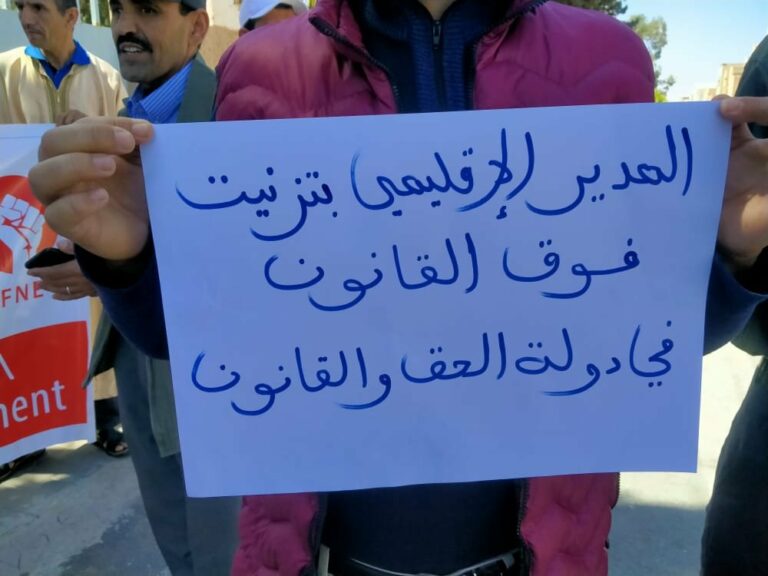 المدير الإقليمي بتزنيت
فوق القانون
في دولة الحق والقانون
FNE
ment